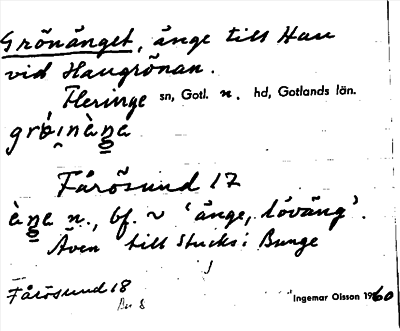 Grönänget, änge till Hau
vid Haugrönan.
Fleringe sn, Gotl. n. hd, Gotlands län.
Fårösund 17
n., bf. ~ 'änge, löväng'.
Även till Stucks i Bunge
Fårösund 18
Ingemar Olsson 1960